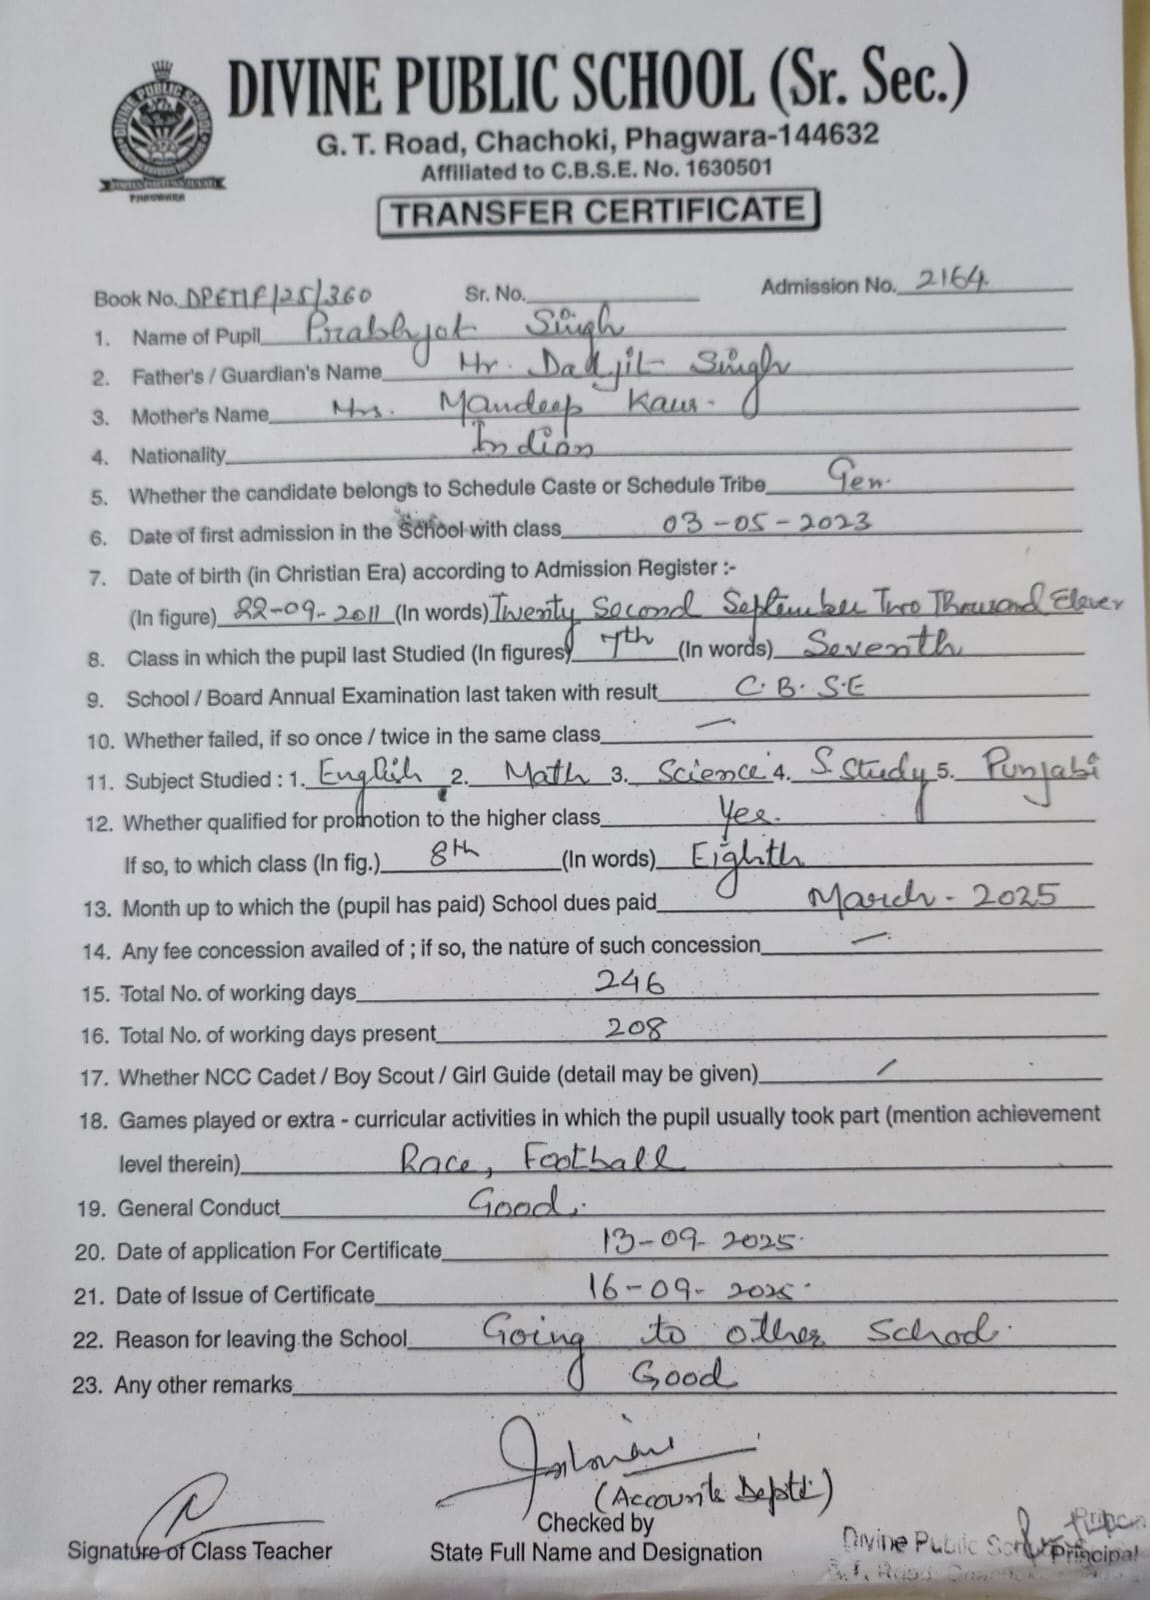 DIVINE PUBLIC SCHOOL (Sr. Sec.)
DIVINE PUBLIC SCHOOL
PHAGWARA
G. T. Road, Chachoki, Phagwara-144632
Affiliated to C.B.S.E. No. 1630501
TRANSFER CERTIFICATE
Book No. DPETIF/25/360 Sr. No. Admission No. 2164
1. Name of Pupil Prabhjot Singh
2. Father's / Guardian's Name Mr. Daljit Singh
3. Mother's Name Mrs. Mandeep Kaur.
4. Nationality Indian
5. Whether the candidate belongs to Schedule Caste or Schedule Tribe Gen.
6. Date of first admission in the School with class 03-05-2023
7. Date of birth (in Christian Era) according to Admission Register :-
(In figure) 22-09-2011 (In words) Twenty Second September Two Thousand Eleven
8. Class in which the pupil last Studied (In figures) 7th (In words) Seventh
9. School / Board Annual Examination last taken with result C.B.S.E
10. Whether failed, if so once / twice in the same class —
11. Subject Studied : 1. English 2. Math 3. Science 4. S.Study 5. Punjabi
12. Whether qualified for promotion to the higher class Yes.
If so, to which class (In fig.) 8th (In words) Eighth
13. Month up to which the (pupil has paid) School dues paid March - 2025
14. Any fee concession availed of ; if so, the nature of such concession —
15. Total No. of working days 246
16. Total No. of working days present 208
17. Whether NCC Cadet / Boy Scout / Girl Guide (detail may be given) /
18. Games played or extra - curricular activities in which the pupil usually took part (mention achievement
level therein) Race, Football
19. General Conduct Good.
20. Date of application For Certificate 13-09-2025
21. Date of Issue of Certificate 16-09-2025
22. Reason for leaving the School Going to other School.
23. Any other remarks Good
(Accounts Deptt.)
Checked by
Signature of Class Teacher State Full Name and Designation Principal
Divine Public School